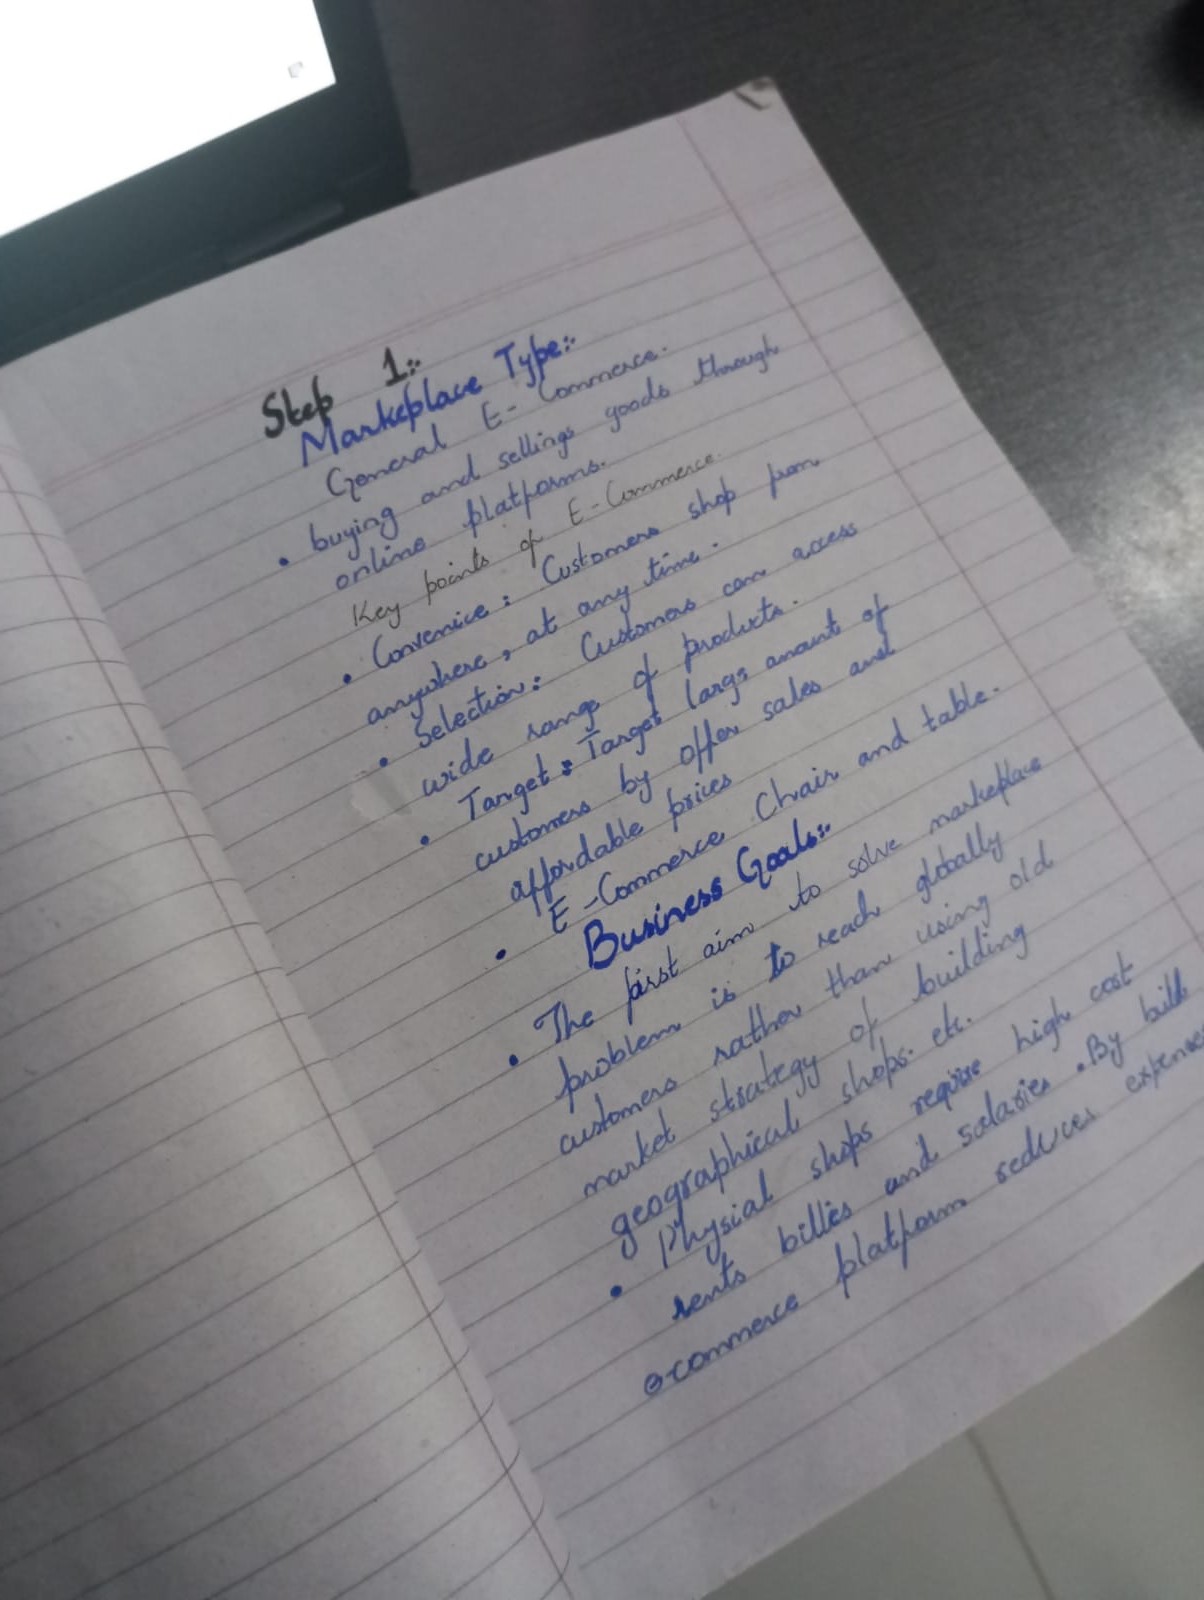 Step 1:-
Markeplace Type:-
General E-Commerce.
• buying and sellings goods through
online platforms.
Key points of E-Commerce.
• Convenice: Customers shop from
anywhere, at any time.
• Selection: Customers can access
wide range of products.
• Target: Target large amount of
customers by offer sales and
affordable prices
• E-Commerce Chair and table.
Business Goals:-
• The first aim to solve markeplace
problem is to reach globally
customers rather than using old
market strategy of building
geographical shops. etc.
• Physial shops require high cost
rents billies and salaries. By build
e-commerce platform reduces expense